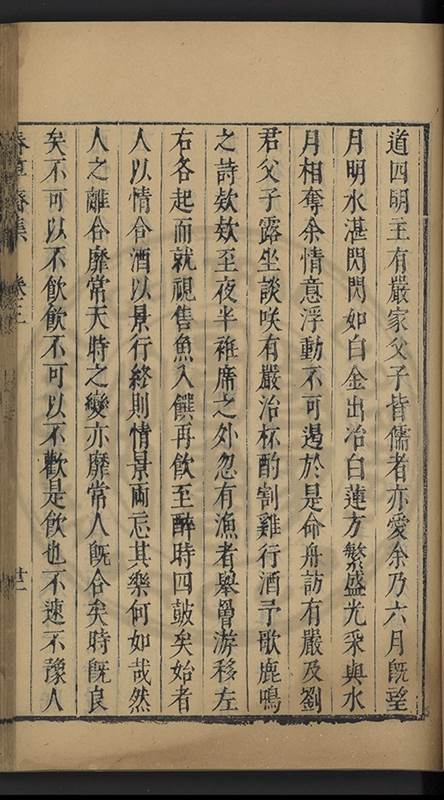 道四明主有嚴家父子皆儒者亦愛余乃六月既望
月明水湛閃閃如白金出冶白蓮方繁盛光采與水
月相奪余情意浮動不可遏於是命舟訪有嚴及劉
君父子露坐談咲有嚴治杯酌割雞行酒予歌鹿鳴
之詩欸欸至夜半雜席之外忽有漁者舉罾游移左
右各起而就視售魚入饌再飲至醉時四鼓矣始者
人以情合酒以景行終則情景兩忘其樂何如哉然
人之離合靡常天時之變亦靡常人既合矣時既良
矣不可以不飲飲不可以不歡是飲也不速不豫人
春草齋集 卷三 廿二